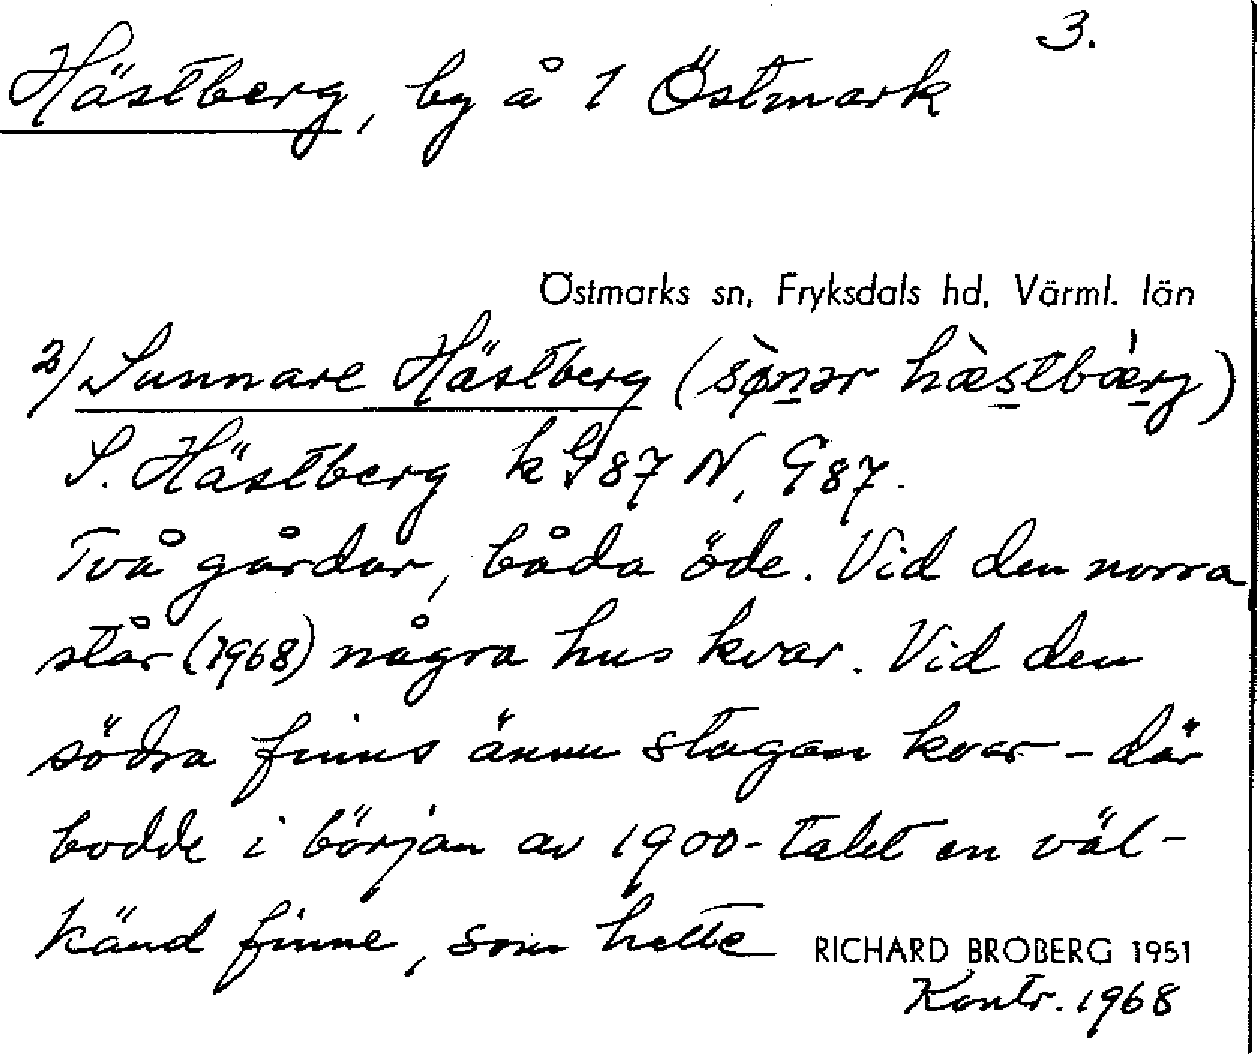 3.
Hästberg, by å 1 Östmark
Östmarks sn, Fryksdals hd, Värml. län
2/ Sunnare Hästberg (sø̀nər hæ̀stbǽrg)
S. Hästberg k G87 N, G87.
Två gårdar, båda öde. Vid den norra
står (1968) några hus kvar. Vid den
södra finns ännu stugan kvar – där
bodde i början av 1900-talet en väl-
känd finne, som hette
RICHARD BROBERG 1951
Kontr. 1968